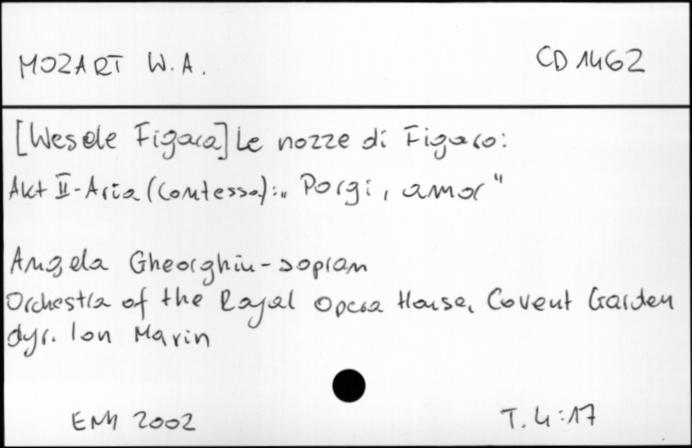 MOZART W.A.
CD 1462
[Wesele Figara] Le nozze di Figaro:
Akt II - Aria (Contessa): „Porgi, amor"
Angela Gheorghiu - sopran
Orchestra of the Royal Opera House, Covent Garden
dyr. Ion Marin
EMI 2002
T. 4:17